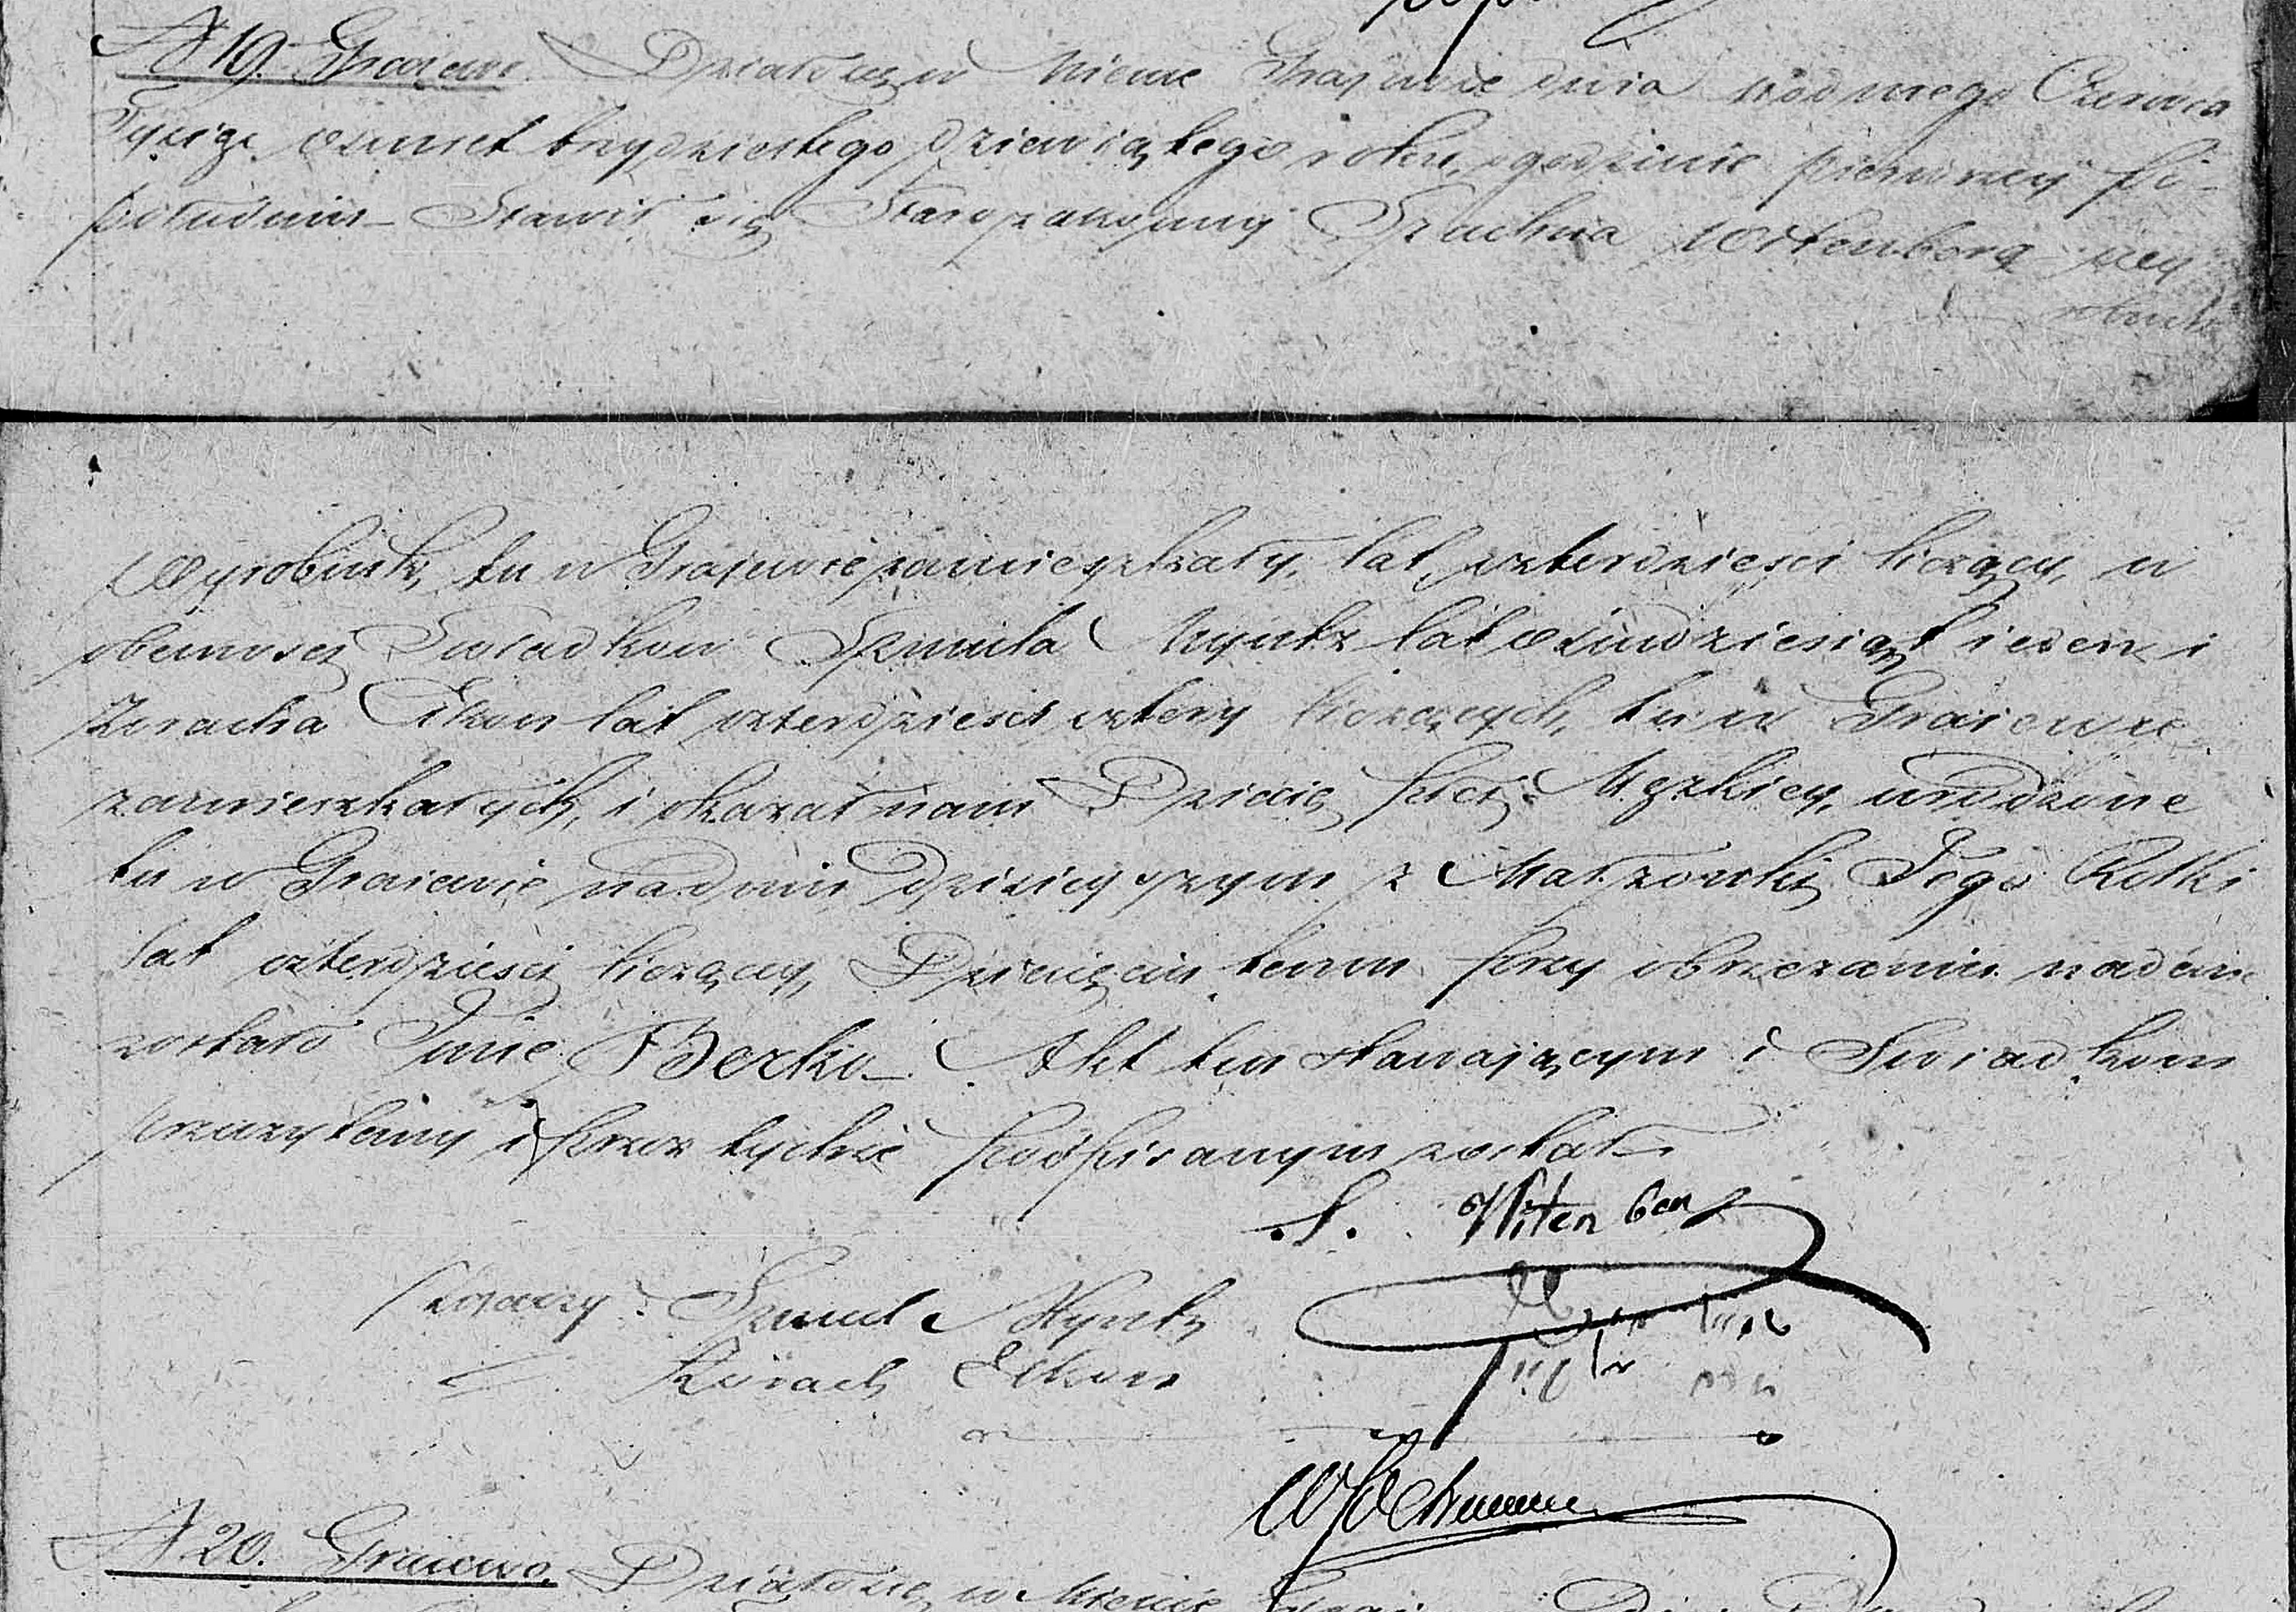 N 19. Grajewo. Działo się w Mieście Grajewie dnia siódmego Czerwca
Tysiąc osmset trzydziestego dziewiątego roku, o godzinie pierwszej po-
południu – Stawił się Starozakonny Szachna Wittenberg
Wyrobnik, tu w Grajewie zamieszkały, lat czterdzieści liczący, w
obecności Swiadków Szmula Myntz lat osimdziesiąt ieden i
Zoracha Elkon lat czterdzieści cztery liczących, tu w Graiewie
zamieszkałych, i okazał nam Dziecię płci Męzkiey, urodzone
tu w Graiewie w dniu dzisieyszym z Małżonki Jego Rotki
lat czterdzieści liczący, Dziecięciu temu przy obrzezaniu nadane
zostało Imie Berko – Akt ten stawaiącym i Swiadkom
przeczytany i przez tychże podpisanym został –
S. Witenberg
Szmul Myntz
Zorach Elkon
N 20. Graiewo. Działo się w Mieście